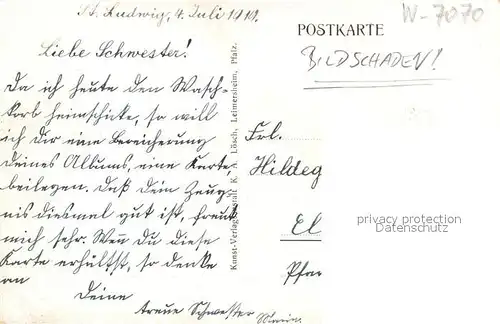 St. Ludwig, 4. Juli 1919.
W-7070
POSTKARTE
BILDSCHADEN!
Liebe Schwester!
Da ich heute den Wasch-
korb heimschicke, so will
ich Dir eine Bereicherung
Deines Albums, eine Karte,
beilegen. Daß Dein Zeug-
nis diesmal gut ist, freut
mich sehr. Wenn Du diese
Karte erhältst, so denke
an
Deine
treue Schwester
Kunst-Verlagsanstalt K. Lösch, Leimersheim, Pfalz.
Frl.
Hildeg
El
Pfar
privacy protection
Datenschutz